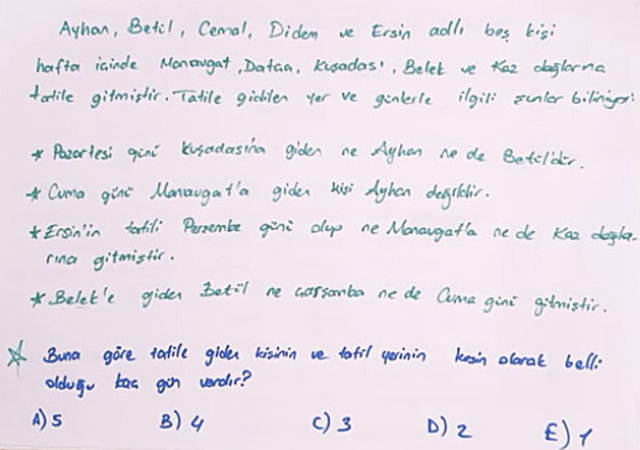 Ayhan, Betül, Cemal, Didem ve Ersin adlı beş kişi
hafta içinde Manavgat, Datça, Kuşadası, Belek ve Kaz dağlarına
tatile gitmiştir. Tatile gidilen yer ve günlerle ilgili şunlar biliniyor:
* Pazartesi günü Kuşadasına giden ne Ayhan ne de Betül'dür.
* Cuma günü Manavgat'a giden kişi Ayhan değildir.
* Ersin'in tatili Perşembe günü olup ne Manavgat'a ne de Kaz dağla-
rına gitmiştir.
* Belek'e giden Betül ne çarşamba ne de Cuma günü gitmiştir.
Buna göre tatile giden kişinin ve tatil yerinin kesin olarak belli
olduğu kaç gün vardır?
A) 5 B) 4 C) 3 D) 2 E) 1